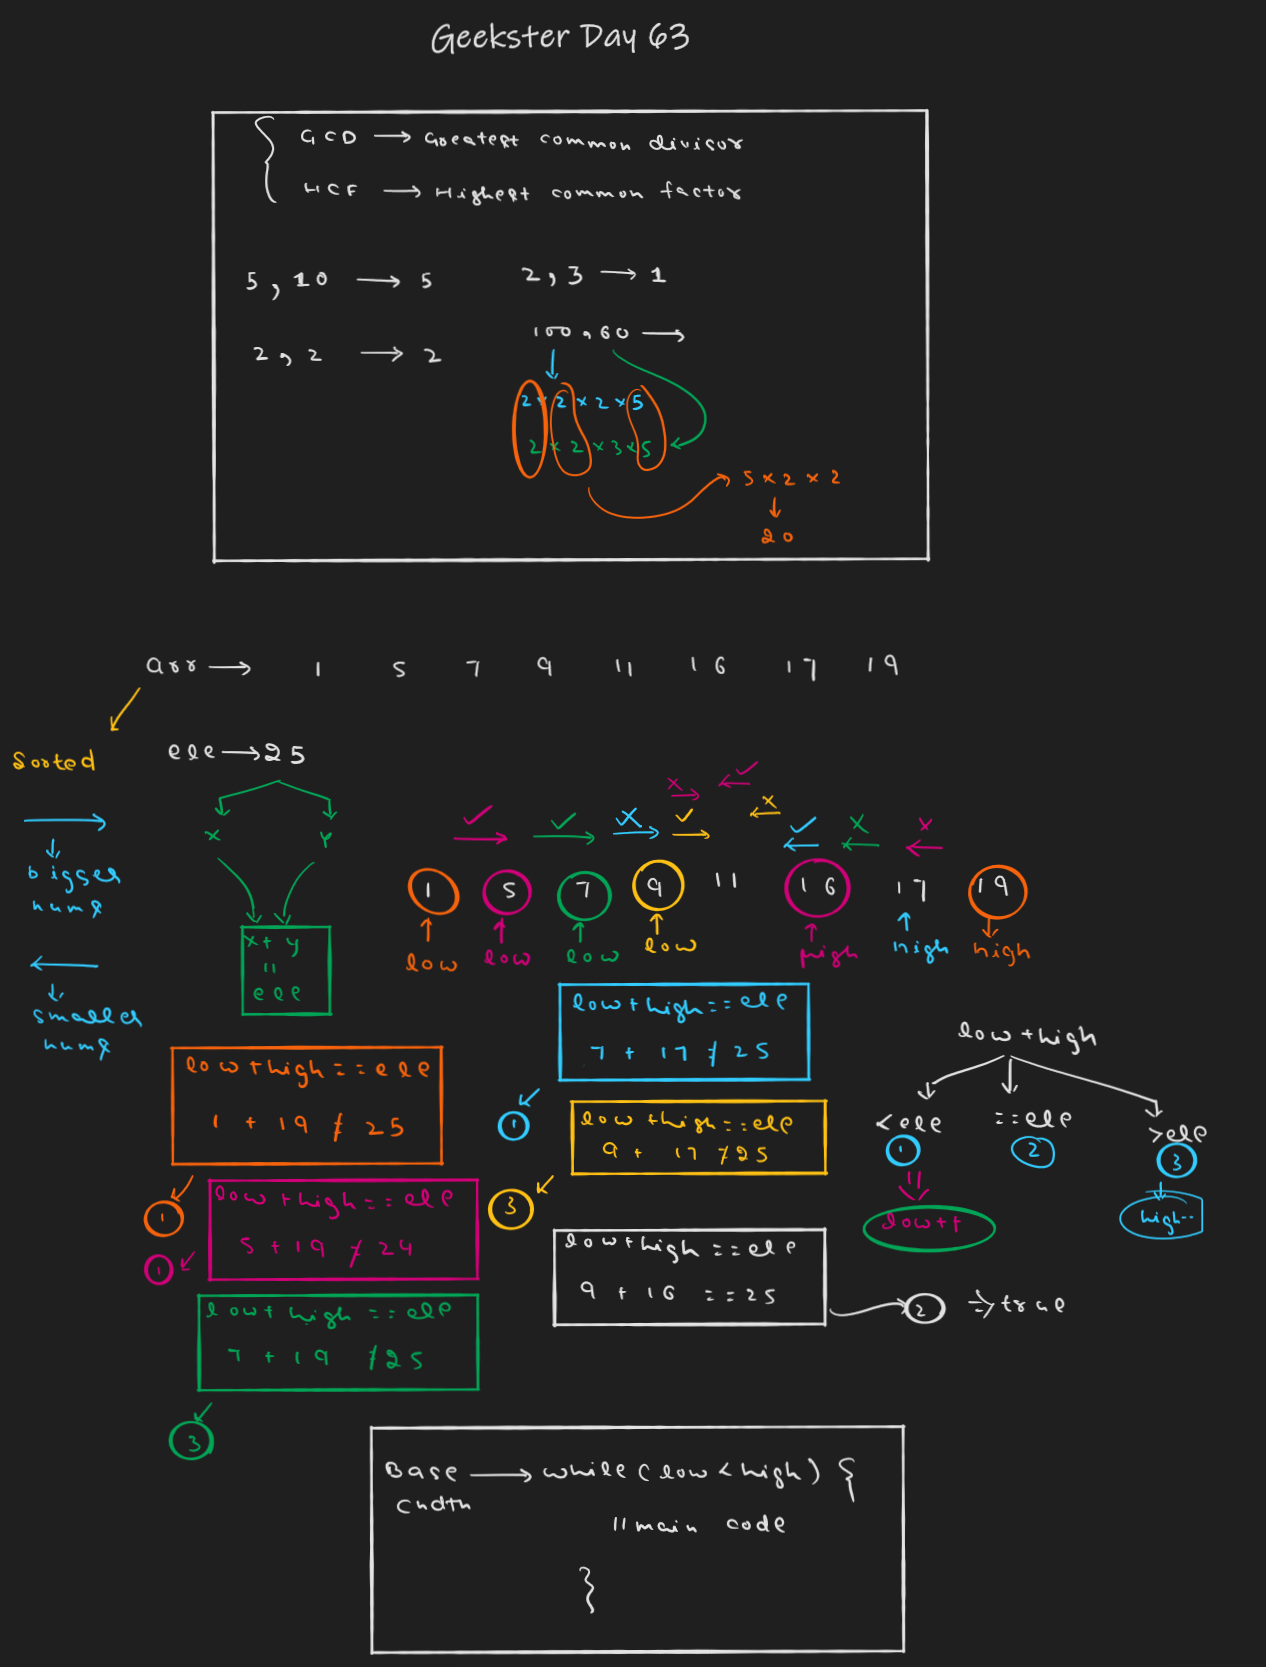 Geekster Day 63
GCD → Greatest common divisor
HCF → Highest common factor
5, 10 → 5
2, 3 → 1
2, 2 → 2
100, 60 →
2 × 2 × 2 × 5
2 × 2 × 3 × 5
5 × 2 × 2
20
arr → 1 5 7 9 11 16 17 19
Sorted
ele → 25
x y
bigger
nums
x + y
==
ele
smaller
nums
1 5 7 9 11 16 17 19
low low low low high high high
low + high == ele
7 + 17 ≠ 25
1
low + high
< ele == ele > ele
1 2 3
low++ high--
low + high == ele
1 + 19 ≠ 25
1
low + high == ele
9 + 17 ≠ 25
3
low + high == ele
5 + 19 ≠ 24
1
low + high == ele
9 + 16 == 25
2 ⇒ true
low + high == ele
7 + 19 ≠ 25
3
Base → while (low < high) {
cndtn
// main code
}